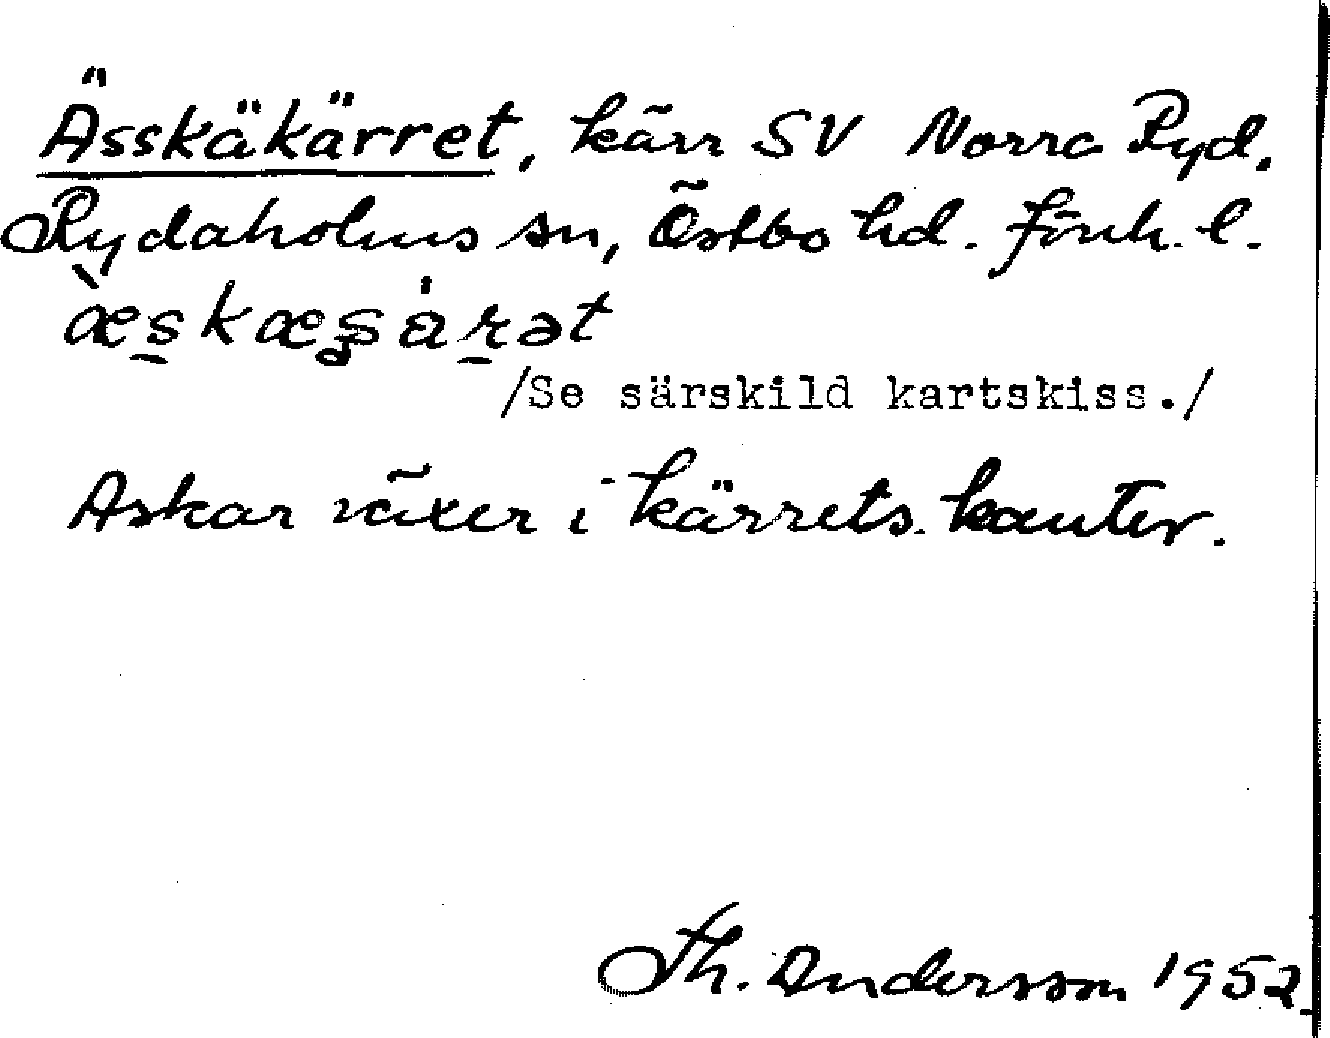 Ässkäkärret, kärr SV Norra Ryd,
Rydaholms sn, Östbo hd. Jönk. l.
/Se särskild kartskiss./
Askar växer i kärrets kanter.
Th. Andersson 1952